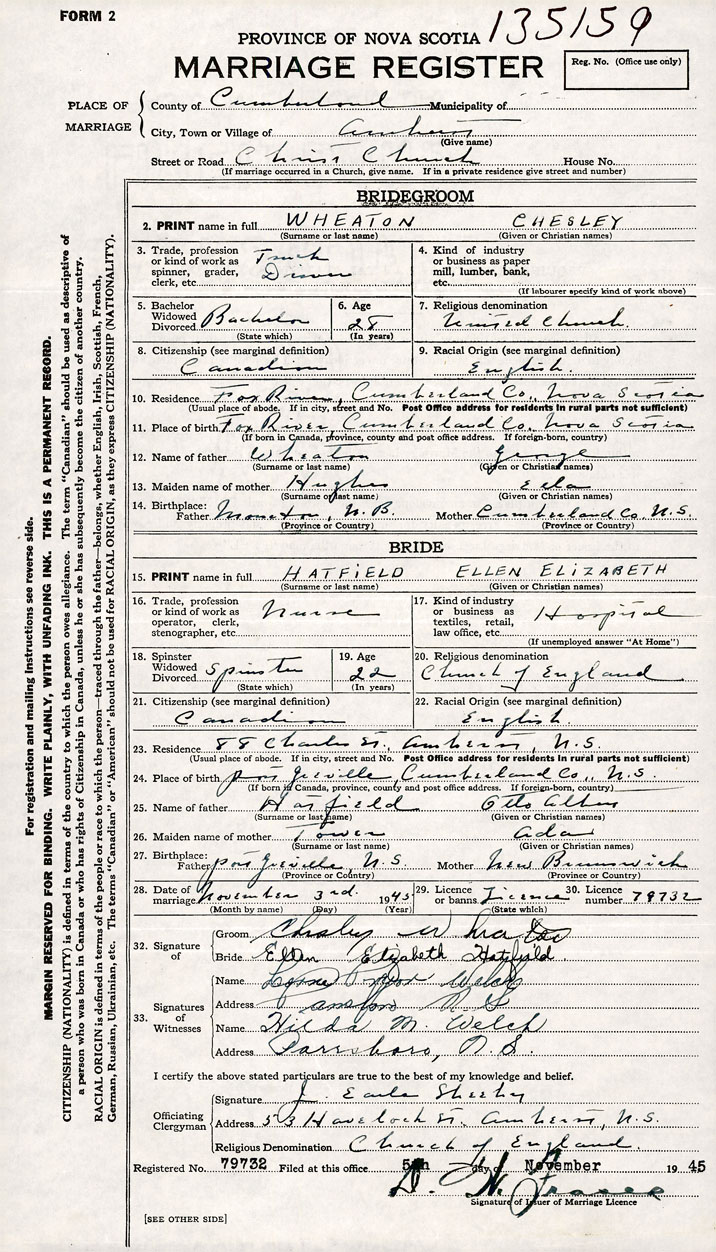 FORM 2
135159
PROVINCE OF NOVA SCOTIA
MARRIAGE REGISTER
Reg. No. (Office use only)
PLACE OF MARRIAGE
County of Cumberland Municipality of
City, Town or Village of Amherst
(Give name)
Street or Road Christ Church House No.
(If marriage occurred in a Church, give name. If in a private residence give street and number)
BRIDEGROOM
2. PRINT name in full WHEATON CHESLEY
(Surname or last name) (Given or Christian names)
3. Trade, profession or kind of work as spinner, grader, clerk, etc. Truck Driver
4. Kind of industry or business as paper mill, lumber, bank, etc.
(If labourer specify kind of work above)
5. Bachelor Widowed Divorced Bachelor
(State which)
6. Age 28
(In years)
7. Religious denomination
United Church.
8. Citizenship (see marginal definition)
Canadian
9. Racial Origin (see marginal definition)
English.
10. Residence Fox River, Cumberland Co., Nova Scotia
(Usual place of abode. If in city, street and No. Post Office address for residents in rural parts not sufficient)
11. Place of birth Fox River, Cumberland Co., Nova Scotia
(If born in Canada, province, county and post office address. If foreign-born, country)
12. Name of father Wheaton George
(Surname or last name) (Given or Christian names)
13. Maiden name of mother Hughes
(Surname or last name) (Given or Christian names)
14. Birthplace: Father Moncton, N.B. Mother Cumberland Co. N.S.
(Province or Country) (Province or Country)
BRIDE
15. PRINT name in full HATFIELD ELLEN ELIZABETH
(Surname or last name) (Given or Christian names)
16. Trade, profession or kind of work as operator, clerk, stenographer, etc. Nurse
17. Kind of industry or business as textiles, retail, law office, etc. Hospital
(If unemployed answer "At Home")
18. Spinster Widowed Divorced Spinster
(State which)
19. Age 22
(In years)
20. Religious denomination
Church of England
21. Citizenship (see marginal definition)
Canadian
22. Racial Origin (see marginal definition)
English.
23. Residence 88 Charles St., Amherst, N.S.
(Usual place of abode. If in city, street and No. Post Office address for residents in rural parts not sufficient)
24. Place of birth Port Greville, Cumberland Co., N.S.
(If born in Canada, province, county and post office address. If foreign-born, country)
25. Name of father Hatfield Otto
(Surname or last name) (Given or Christian names)
26. Maiden name of mother Tower Ada
(Surname or last name) (Given or Christian names)
27. Birthplace: Father Port Greville, N.S. Mother New Brunswick
(Province or Country) (Province or Country)
28. Date of marriage November 3rd. 1945
(Month by name) (Day) (Year)
29. Licence or banns Licence
(State which)
30. Licence number 79732
32. Signature of
Groom Chesley Wheaton
Bride Ellen Elizabeth Hatfield.
33. Signatures of Witnesses
Name Welch
Address N S
Name Hilda M. Welch
Address Parrsboro, N.S.
I certify the above stated particulars are true to the best of my knowledge and belief.
Officiating Clergyman
Signature J. Earle Sheeby
Address 53 Havelock St. Amherst, N.S.
Religious Denomination Church of England.
Registered No. 79732 Filed at this office 5th day of November 1945
Signature of Issuer of Marriage Licence
[SEE OTHER SIDE]
For registration and mailing instructions see reverse side.
MARGIN RESERVED FOR BINDING. WRITE PLAINLY, WITH UNFADING INK. THIS IS A PERMANENT RECORD.
CITIZENSHIP (NATIONALITY) is defined in terms of the country to which the person owes allegiance. The term "Canadian" should be used as descriptive of
a person who was born in Canada or who has rights of Citizenship in Canada, unless he or she has subsequently become the citizen of another country.
RACIAL ORIGIN is defined in terms of the people or race to which the person—traced through the father—belongs, whether English, Irish, Scottish, French,
German, Russian, Ukrainian, etc. The terms "Canadian" or "American" should not be used for RACIAL ORIGIN, as they express CITIZENSHIP (NATIONALITY).